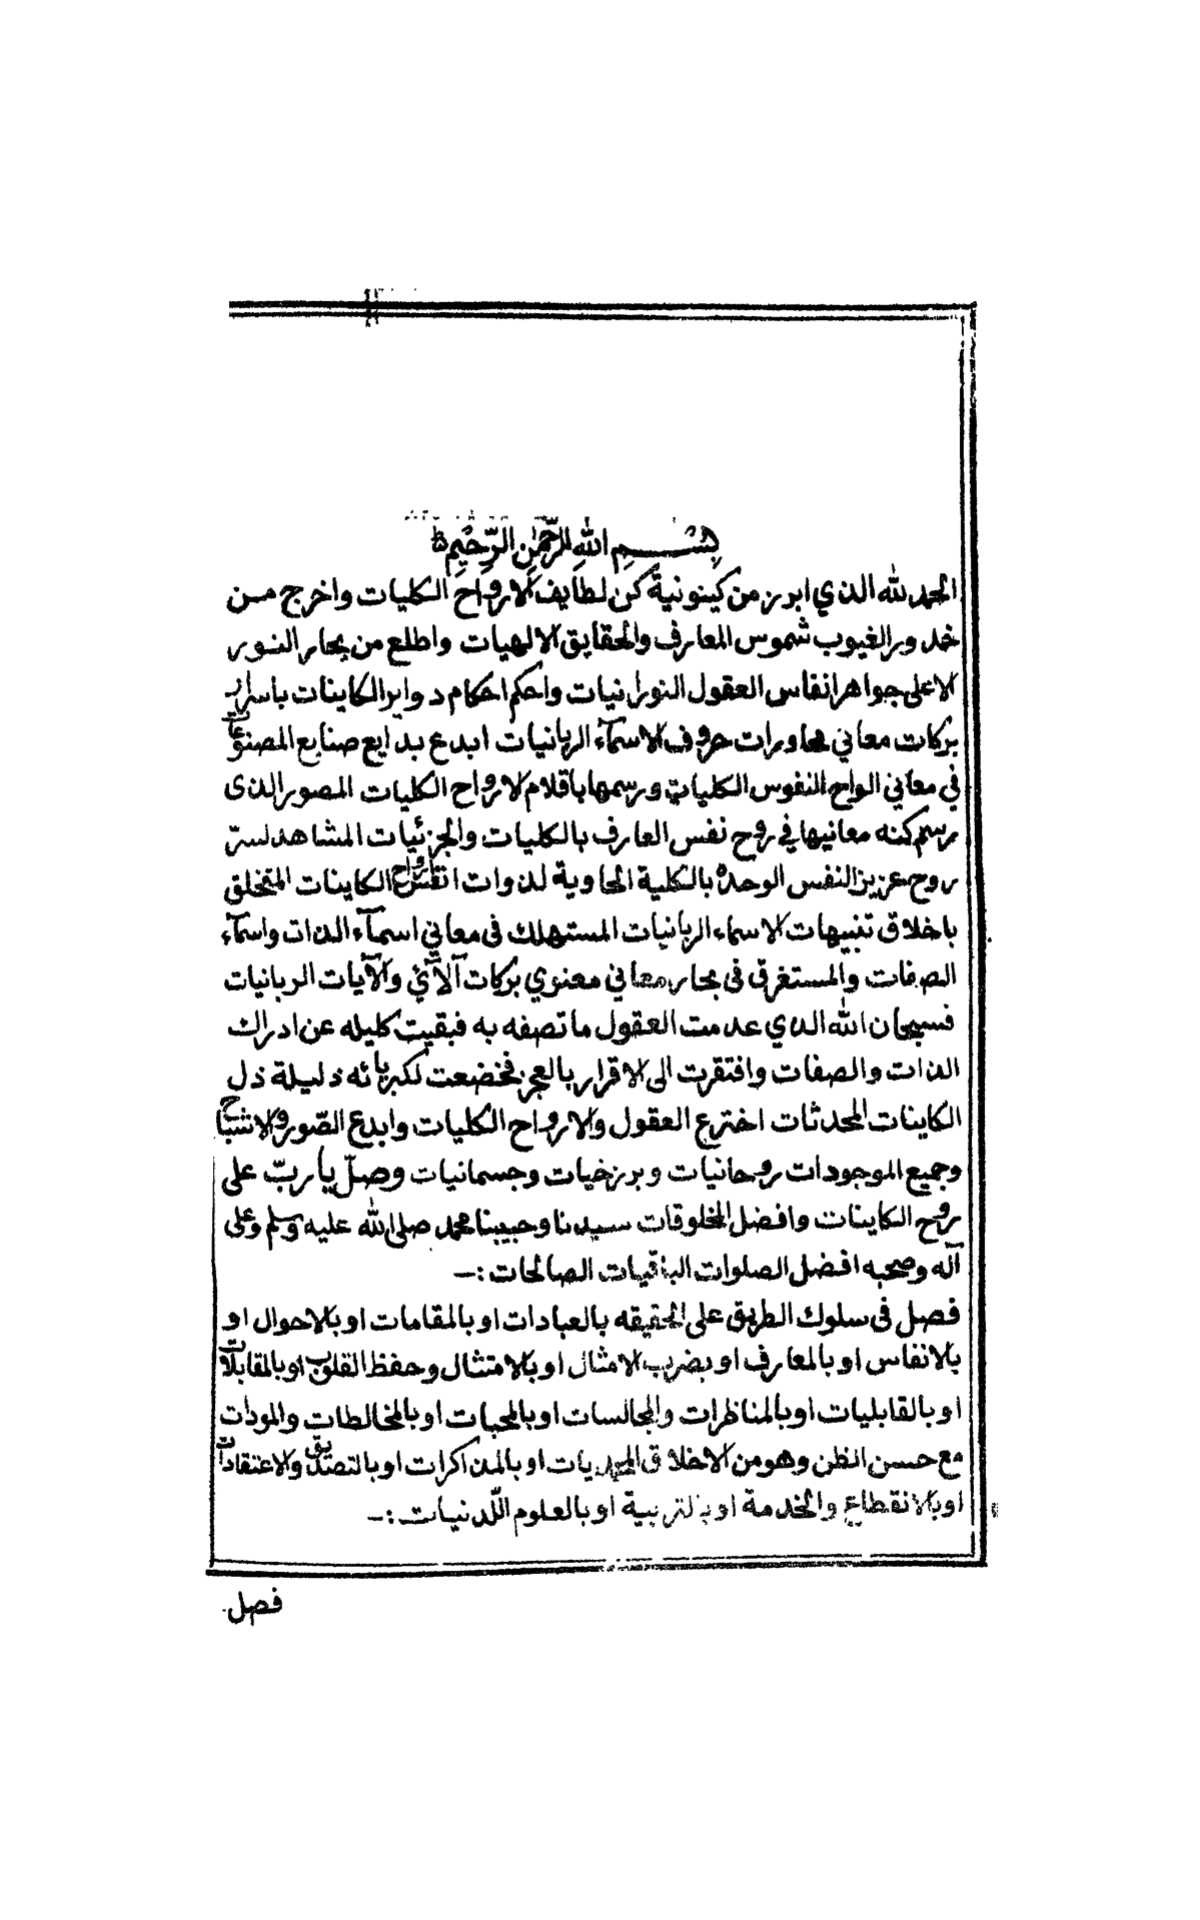 بسم الله الرحمن الرحيم
الحمد لله الذي ابرز من كينونية كن لطايف الارواح الكليات واخرج من
خدور الغيوب شموس المعارف والحقايق الالهيات واطلع من بحار النور
الاعلى جواهر انفاس العقول النورانيات واحكم احكام دواير الكاينات باسرار
بركات معاني محاورات حروف الاسمآء الربانيات ابدع بدايع صنايع المصنوعات
في معاني الواح النفوس الكليات ورسمها باقلام الارواح الكليات المصور الذى
رسم كنه معانيها في روح نفس العارف بالكليات والجزئيات المشاهد لستر
روح عزيز النفس الوحده بالكلية الحاوية لذوات انفاس ارواح الكاينات المتخلق
باخلاق تنبيهات الاسماء الربانيات المستهلك فى معاني اسمآء الذات واسمآء
الصفات والمستغرق فى بحار معاني معنوي بركات آلآئ والآيات الربانيات
فسبحان الله الذي عدمت العقول ما تصفه به فبقيت كليله عن ادراك
الذات والصفات وافتقرت الى الاقرار بالعجز فخضعت لكبريائه ذليلة ذل
الكاينات المحدثات اخترع العقول والارواح الكليات وابدع الصّور والاشباح
وجميع الموجودات روحانيات وبرزخيات وجسمانيات وصلّ يا ربّ على
روح الكاينات وافضل المخلوقات سيدنا وحبيبنا محمد صلى الله عليه وسلم وعلى
آله وصحبه افضل الصلوات الباقيات الصالحات :ـ
فصل فى سلوك الطريق على الحقيقه بالعبادات او بالمقامات او بالاحوال او
بالانفاس او بالمعارف او بضرب الامثال او بالامتثال وحفظ القلوب او بالمقابلات
او بالقابليات او بالمناظرات والمجالسات او بالمحبات او بالمخالطات والمودات
مع حسن الظن وهو من الاخلاق المحمديات او بالمذاكرات او بالتصديق والاعتقادات
او بالانقطاع والخدمة او بالتربية او بالعلوم اللّدنيات :ـ
فصل